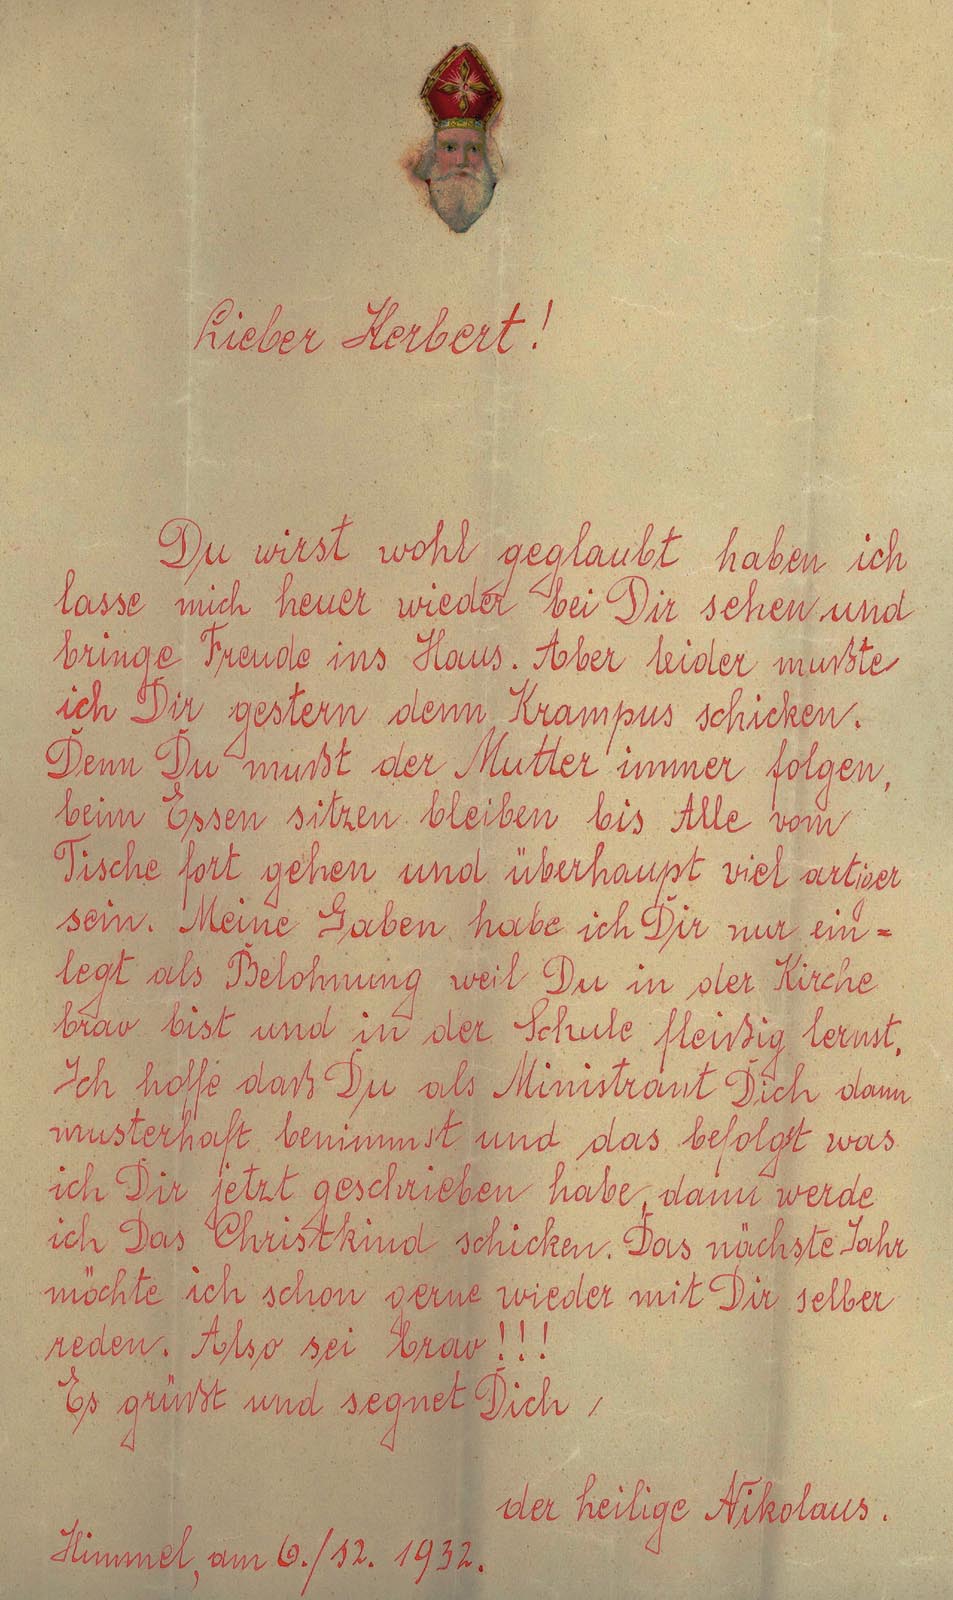 Lieber Herbert!
Du wirst wohl geglaubt haben ich
lasse mich heuer wieder bei Dir sehen und
bringe Freude ins Haus. Aber leider mußte
ich Dir gestern denn Krampus schicken.
Denn Du mußt der Mutter immer folgen,
beim Essen sitzen bleiben bis Alle vom
Tische fort gehen und überhaupt viel artiger
sein. Meine Gaben habe ich Dir nur ein=
legt als Belohnung weil Du in der Kirche
brav bist und in der Schule fleißig lernst.
Ich hoffe daß Du als Ministrant Dich dann
musterhaft benimmst und das befolgst was
ich Dir jetzt geschrieben habe, dann werde
ich Das Christkind schicken. Das nächste Jahr
möchte ich schon gerne wieder mit Dir selber
reden. Also sei brav!!!
Es grüßt und segnet Dich,
der heilige Nikolaus.
Himmel, am 6./12. 1932.